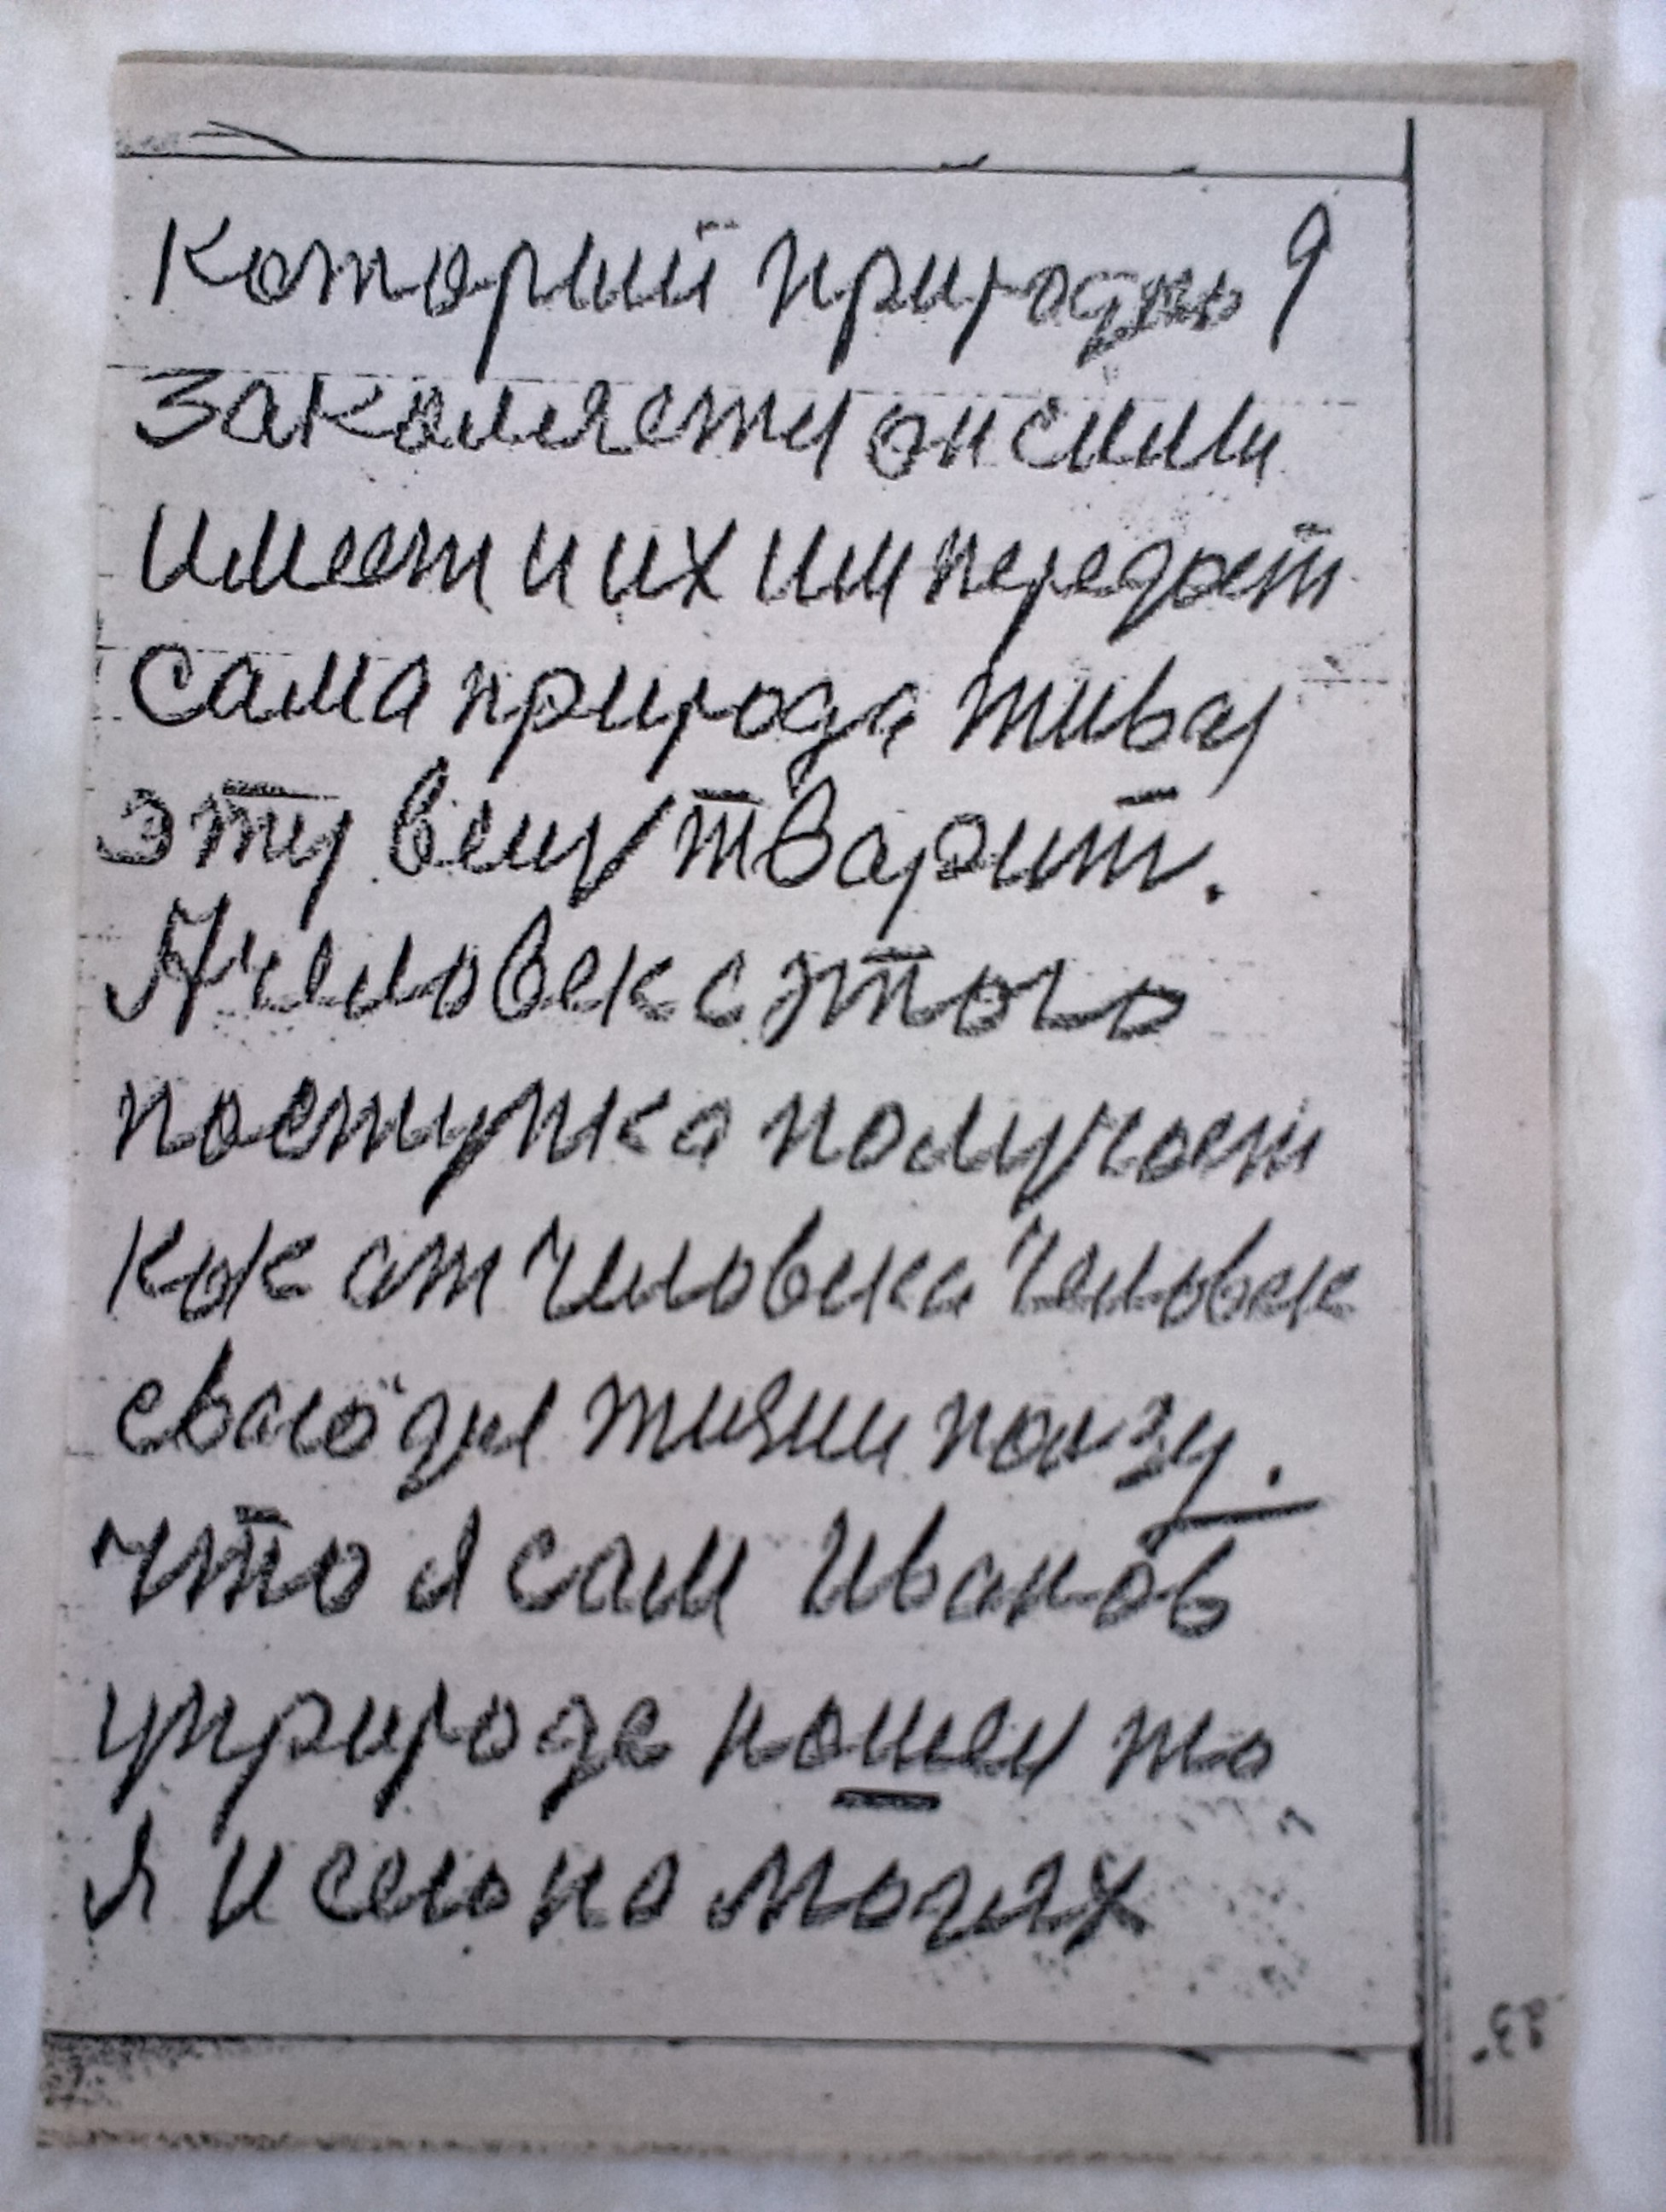 который природу 9
заколясту он силы
имеет и их им передает
сама природа живая
эту вещ творит.
А человек с этого
поступка получает
как от человека человек
сваё для жизни ползу.
что я сам Иванов
у природе нашел то
я и сею на могих